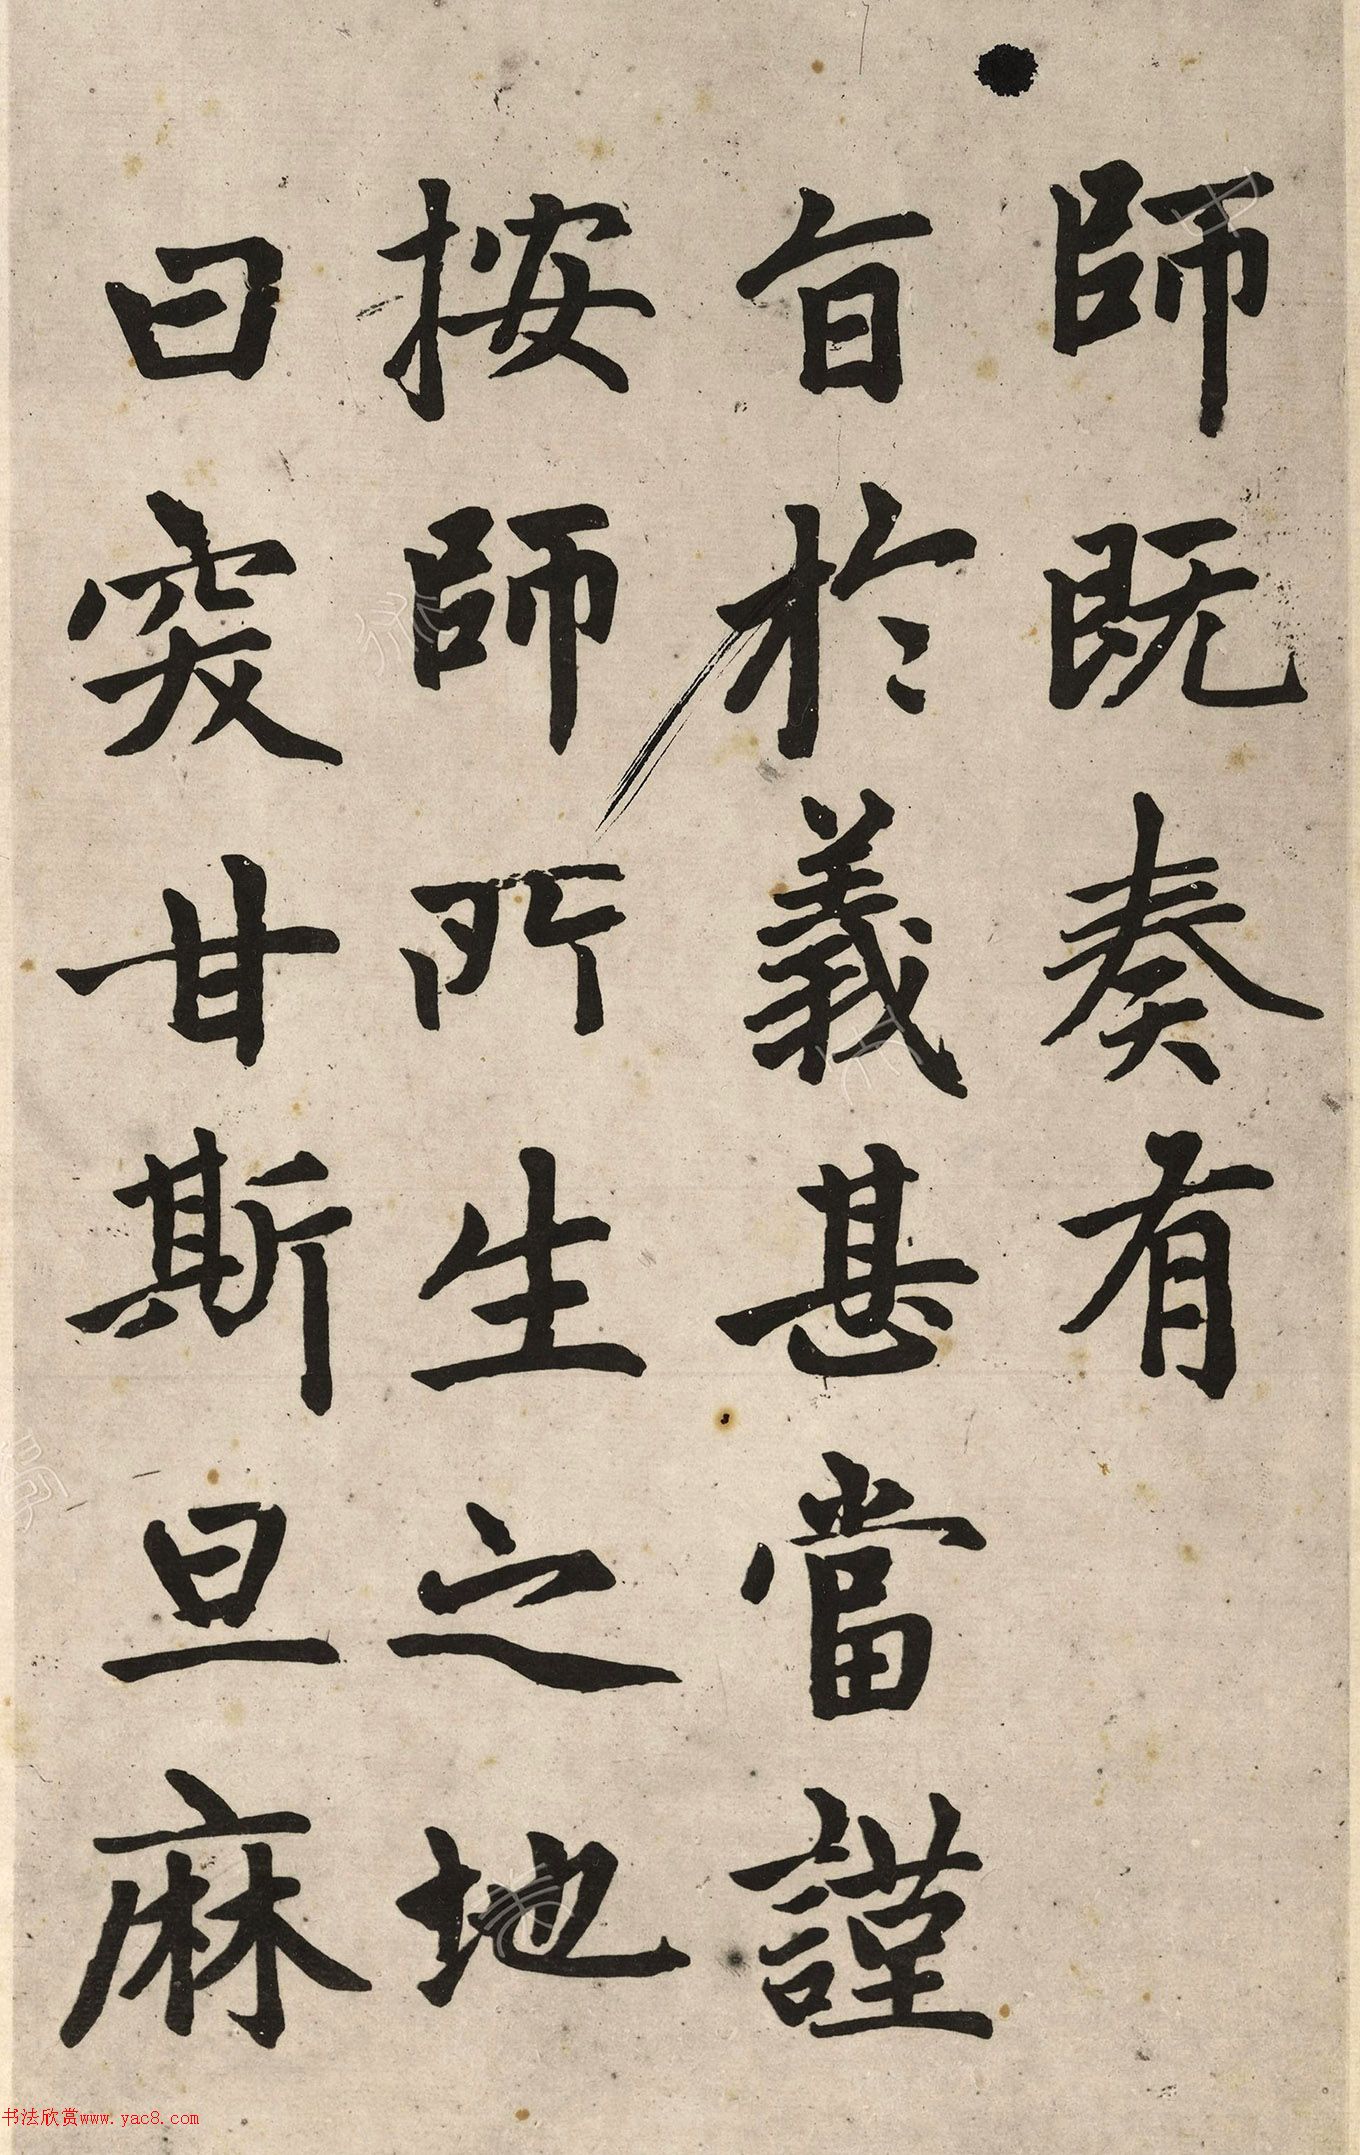 師既奏有
旨於義甚當謹
按師所生之地
曰突甘斯旦麻
书法欣赏www.yac8.com